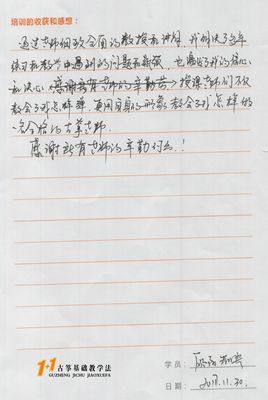 培训的收获和感想：
通过老师细致全面的教授和讲解，我解决了多年
练习和教学中遇到的问题和疑惑，也增强了我的信心
和决心（感谢所有老师的辛勤劳）授课老师们不仅
教会了我怎样弹，更用自身的形象教会了我怎样做
一名合格的古筝老师。
感谢所有老师的辛勤付出！
1+1古筝基础教学法
GUZHENG JICHU JIAOXUEFA
学员：
日期：2018.11.30.